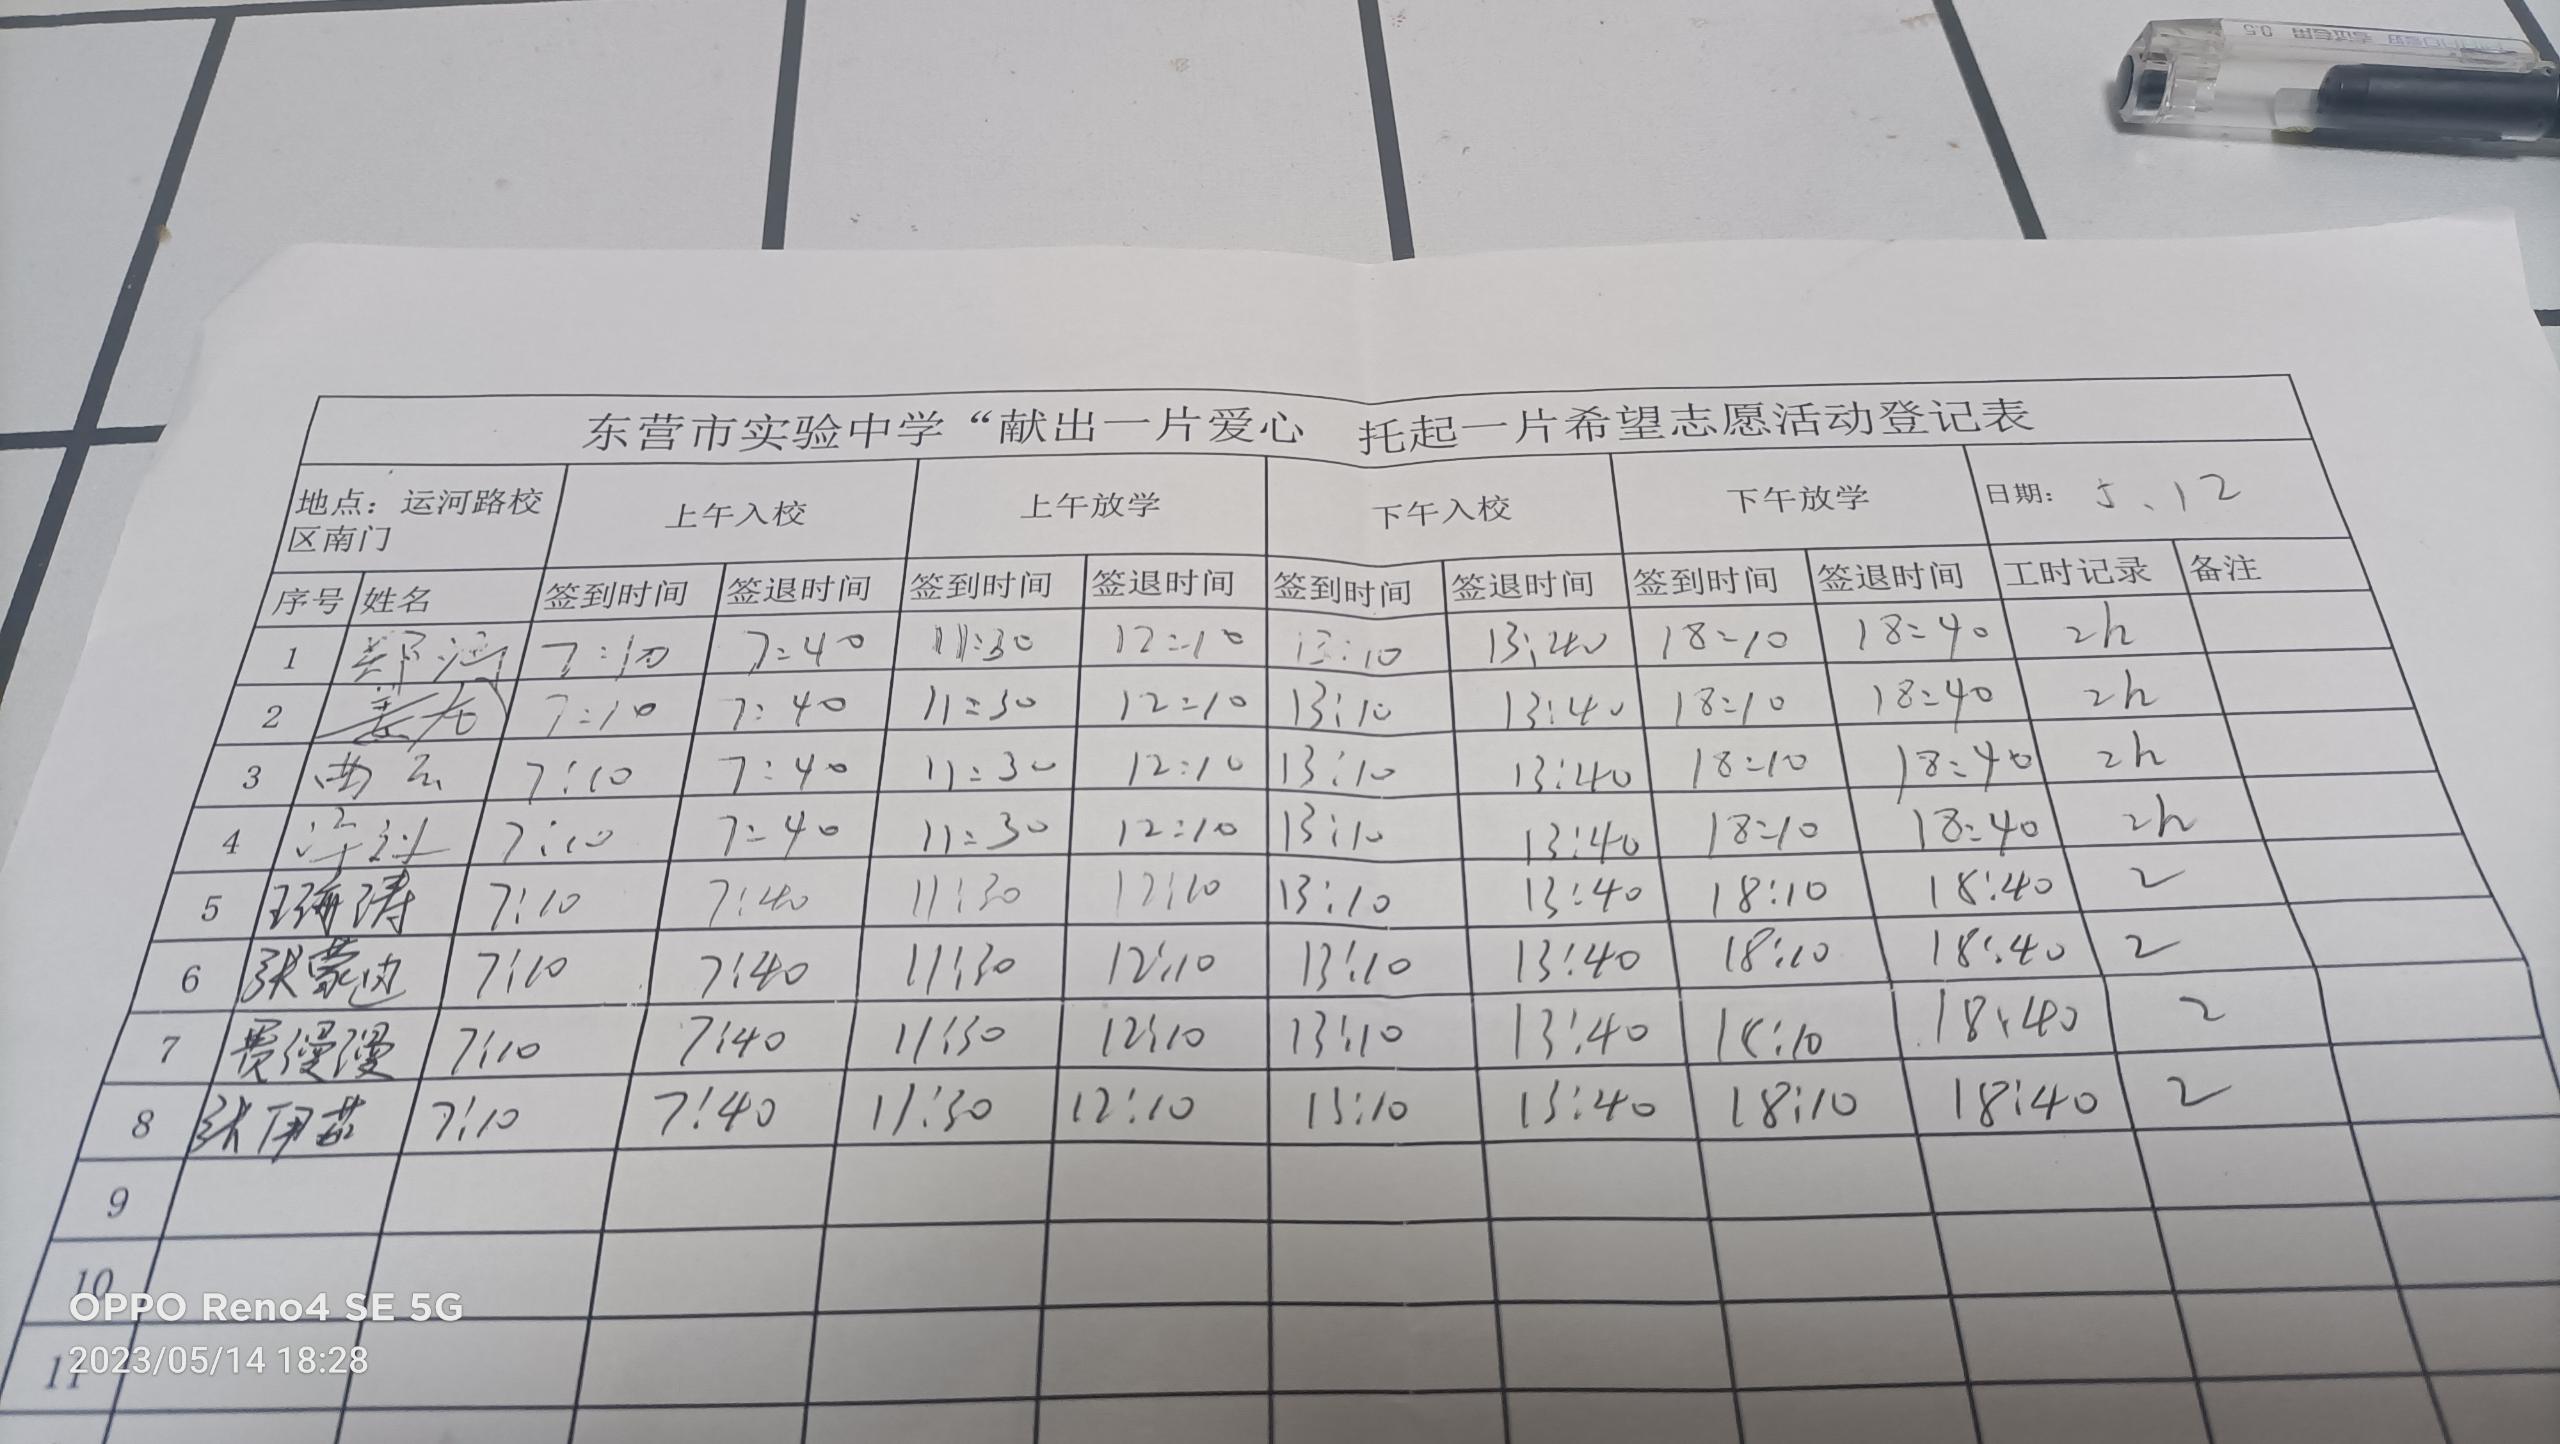 东营市实验中学“献出一片爱心 托起一片希望志愿活动登记表
地点：运河路校区南门 上午入校 上午放学 下午入校 下午放学 日期： 5.12
序号 姓名 签到时间 签退时间 签到时间 签退时间 签到时间 签退时间 签到时间 签退时间 工时记录 备注
1 7:10 7:40 11:30 12:10 13:10 13:40 18:10 18:40 2h
2 7:10 7:40 11:30 12:10 13:10 13:40 18:10 18:40 2h
3 7:10 7:40 11:30 12:10 13:10 13:40 18:10 18:40 2h
4 7:10 7:40 11:30 12:10 13:10 13:40 18:10 18:40 2h
5 王海涛 7:10 7:40 11:30 12:10 13:10 13:40 18:10 18:40 2
6 张蒙 7:10 7:40 11:30 12:10 13:10 13:40 18:10 18:40 2
7 贾漫漫 7:10 7:40 11:30 12:10 13:10 13:40 18:10 18:40 2
8 张伊茹 7:10 7:40 11:30 12:10 13:10 13:40 18:10 18:40 2
9
10
11
OPPO Reno4 SE 5G
2023/05/14 18:28